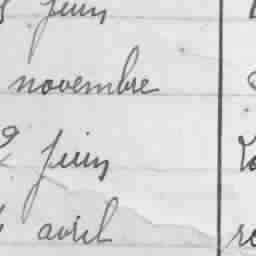 juin
novembre
juin
avril